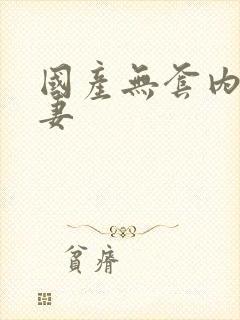 國產無套内
妻
貧瘠